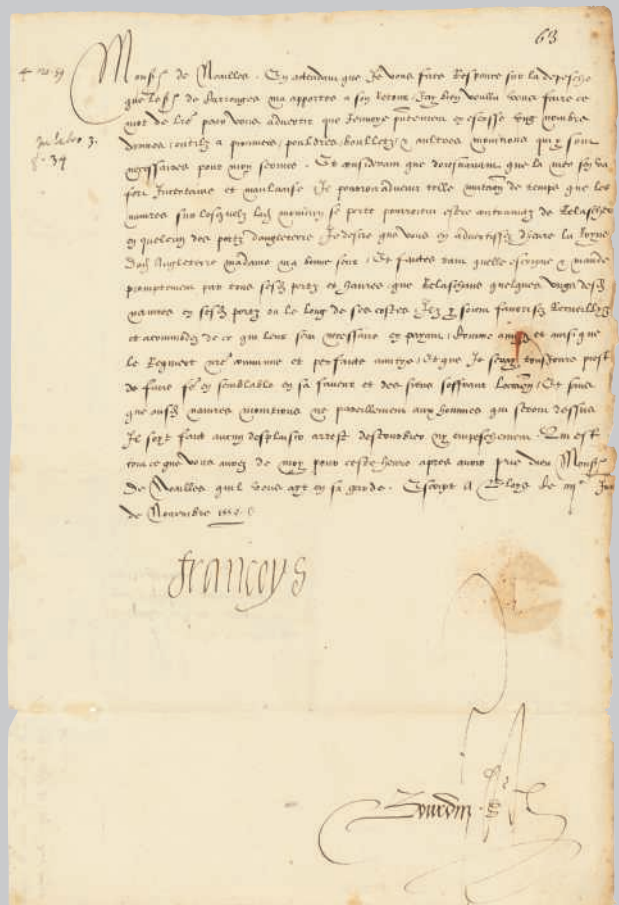 63
4 no. 59
Monsr de Noailles. En actendant que Je vous face Responce sur la depesche
que le Sr de ma apportee a son Retour Jay bien voullu vous faire ce
mot de lre pour vous advertir que Jenvoye presentement en escosse ung nombre
darmes, oultilz a pionniers, pouldres, boulletz, & aultres monitions qui y sont
necessaires pour mon service. Et considerant que doresnavant que la mer sen va
fort Incertaine et maulvaise Je pourroit advenir telle mutaon de temps que les
navires sur lesquelz lad monition se porte pourroient estre contrainctz de Relascher
en quelcun des portz dangleterre Je desire que vous en advertissez dheure la Royne
Dud Angleterre madame ma bonne seur, Et faictes tant quelle escripve & mande
promptement par tous sesd portz et havres, que Relaschans quelques ungs desd
navires en sesd portz ou le long de ses costes Ilz y soient favorisez Recueilliz
et accommodez de ce qui leur sera necessaire en payant, comme amys et ainsi que
le Requiert nre commune et perfaicte amitye, Et que Je seray tousjours prest
de faire fe en semblable en sa faveur et des siens soffrant loccaon, Et sans
que ausd navires monitions ne pareillement aux hommes qui seront dessus
Il soyt faict aucun desplaisir arrest destourbier ny empeschement. Qui est
tout ce que vous aurez de moy pour ceste heure apres avoir prie dieu Monsr
De Noailles quil vous ayt en sa garde. Escript A Bloys le iiije Jour
de Novembre 1559
francoys
Bourdin